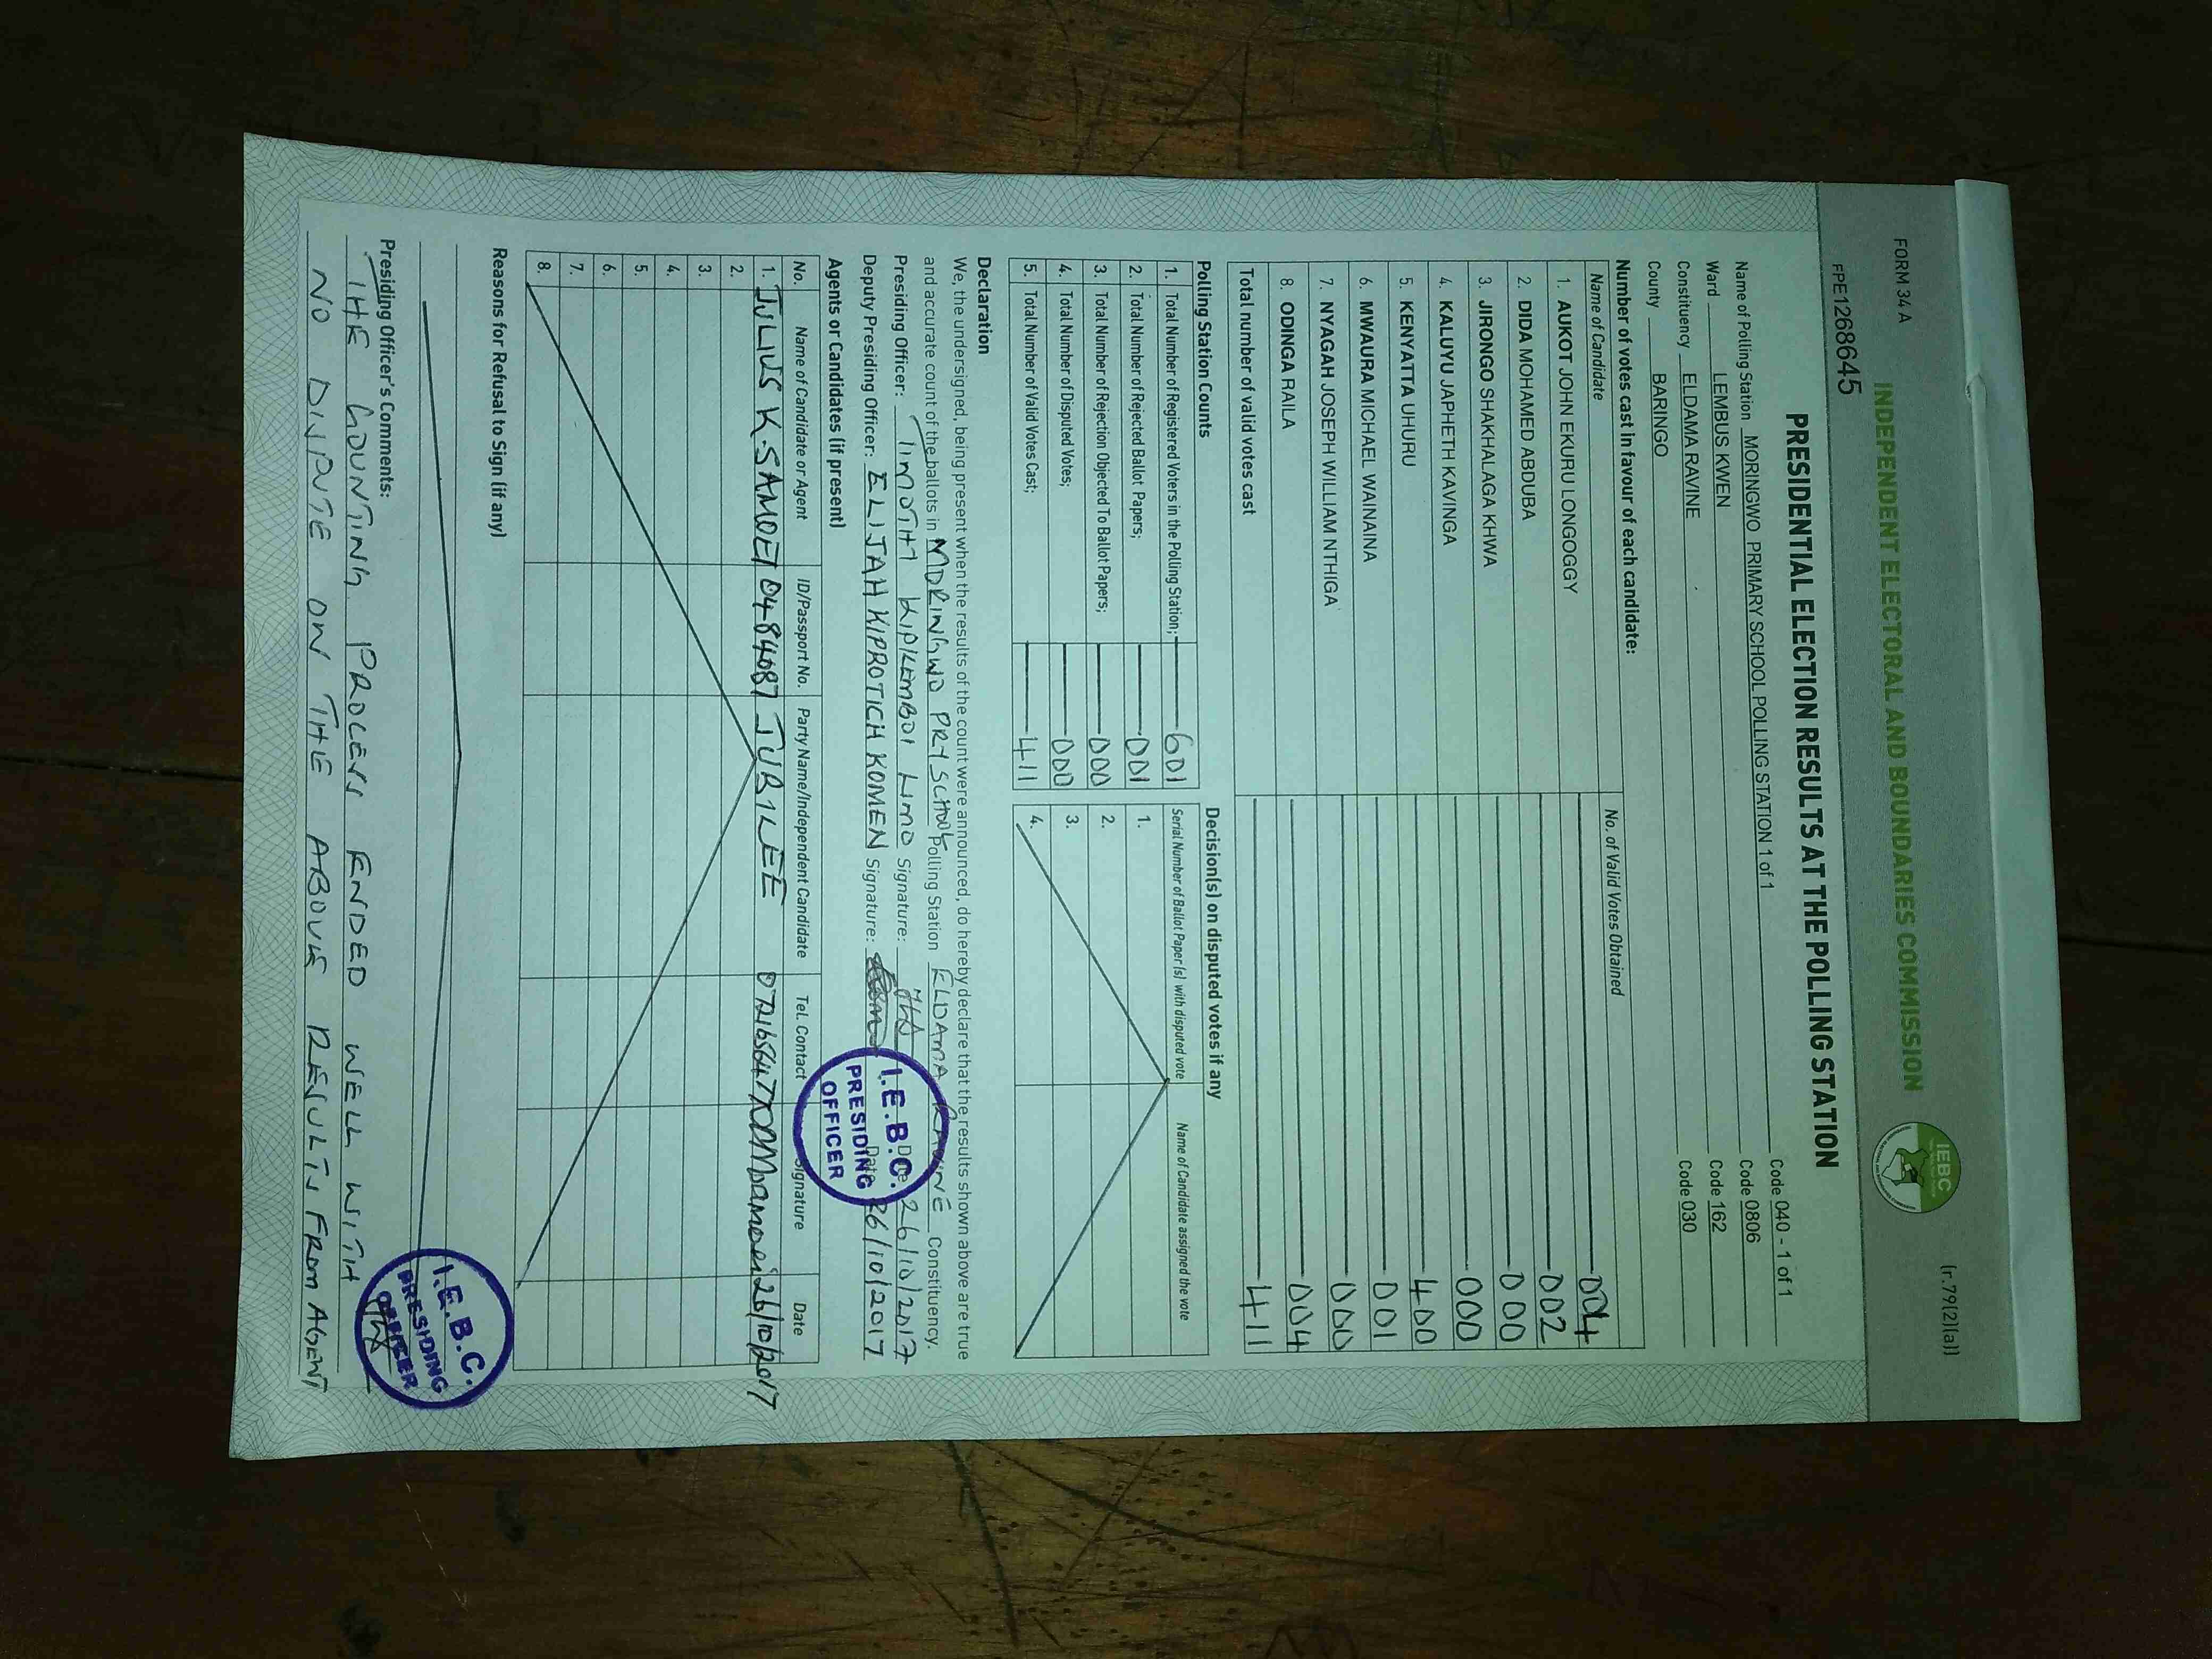 FORM 34 A
(r.79(2)(a))
INDEPENDENT ELECTORAL AND BOUNDARIES COMMISSION
IEBC
FPE1268645
PRESIDENTIAL ELECTION RESULTS AT THE POLLING STATION
Name of Polling Station MORINGWO PRIMARY SCHOOL POLLING STATION 1 of 1 Code 040 - 1 of 1
Ward LEMBUS KWEN Code 0806
Constituency ELDAMA RAVINE Code 162
County BARINGO Code 030
Number of votes cast in favour of each candidate:
Name of Candidate No. of Valid Votes Obtained
1. AUKOT JOHN EKURU LONGOGGY 004
2. DIDA MOHAMED ABDUBA 002
3. JIRONGO SHAKHALAGA KHWA 000
4. KALUYU JAPHETH KAVINGA 000
5. KENYATTA UHURU 400
6. MWAURA MICHAEL WAINAINA 001
7. NYAGAH JOSEPH WILLIAM NTHIGA 000
8. ODINGA RAILA 004
Total number of valid votes cast 411
Polling Station Counts
1. Total Number of Registered Voters in the Polling Station; 601
2. Total Number of Rejected Ballot Papers; 001
3. Total Number of Rejection Objected To Ballot Papers; 000
4. Total Number of Disputed Votes; 000
5. Total Number of Valid Votes Cast; 411
Decision(s) on disputed votes if any
Serial Number of Ballot Paper (s) with disputed vote Name of Candidate assigned the vote
1.
2.
3.
4.
Declaration
We, the undersigned, being present when the results of the count were announced, do hereby declare that the results shown above are true
and accurate count of the ballots in MORINGWO PRY SCHOOL Polling Station ELDAMA RAVINE Constituency.
Presiding Officer: TIMOTHY KIPKEMBOI LIMO Signature: Date 26/10/2017
Deputy Presiding Officer: ELIJAH KIPROTICH KOMEN Signature: Date 26/10/2017
I.E.B.C.
PRESIDING
OFFICER
Agents or Candidates (if present)
No. Name of Candidate or Agent ID/Passport No. Party Name/Independent Candidate Tel. Contact Signature Date
1. JULIUS K. SAMOEI 0484087 JUBILEE 26/10/2017
2.
3.
4.
5.
6.
7.
8.
Reasons for Refusal to Sign (if any)
Presiding Officer's Comments:
THE COUNTING PROCESS ENDED WELL WITH
NO DISPUTE ON THE ABOVE RESULTS FROM AGENT
I.E.B.C.
PRESIDING
OFFICER